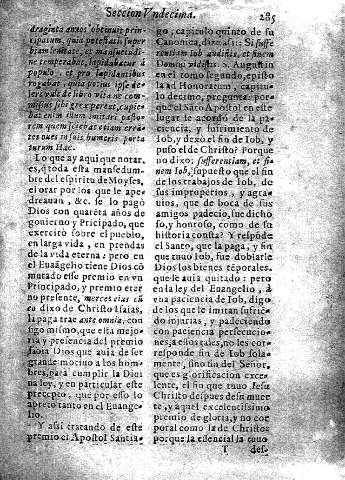 Seccion Vndecima. 285
draginta annos obtinuit prin-
cipatum, quia potestatis super
biam lenitate, et mansuetudi
ne temperabat, lapidabatur à
populo, et pro lapidantibus
rogabat, quia potius ipse de-
leri vult de libro vitæ ne com-
missus sibi grex pereat, cupie-
bat enim illum imitari pasto-
rem quem sciebat etiam erra̅-
tes oues in suis humeris porta
turum Hac.
Lo que ay aqui que notar,
es, q̃ toda esta mansedum-
bre del espiritu de Moyses,
el orar por los que le ape-
dreauan, &c. se lo pagò
Dios con quarẽta años de
gouierno y Pricipado, que
exercitò sobre el pueblo,
en larga vida, en prendas
de la vida eterna: pero en
el Euãgelio tiene Dios cõ
mutado esse premio en vn
Principado, y premio eter
no presente, merces eius cũ
eo dixo de Christo Isaias,
la paga trae ante omnia, con
sigo mismo, que esta mejo-
ria y presencia del premio
sabia Dios que auia de ser
grande motiuo a los hom-
bres, para cumplir la Diui
na ley, y en particular este
precepto, que por esso lo
apretò tanto en el Euange-
lio.
Y assi tratando de este
premio el Apostol Santia-
go, capitulo quinto, de su
Canonica, dize assi: Si suffe
rentiam Iob audistis, et finem
Domini vidistis. S. Augustin
en el tomo segundo, episto
la ad Honoratum, capitu-
lo decimo, pregunta: por
que el Sãto Apostol en este
lugar se acordò de la pa-
ciencia, y sufrimiento de
Iob, y dexò el fin de Iob, y
puso el de Christo? Porque
no dixo; sufferentiam, et fi-
nem Iob, supuesto que el fin
de los trabajos de Iob, de
sus improperios, y agra-
uios, que de boca de sus
amigos padecio, fue dicho
so, y honroso, como de su
historia consta? Y respõde
el Santo, que la paga, y fin
que tuuo Iob, fue doblarle
Dios los bienes tẽporales,
que le auia quitado: pero
en la ley del Euangelio, à
vna paciencia de Iob, digo
de los que le imitan sufriẽ-
do injurias, y padeciendo
con paciencia persecucio-
nes, a essos tales, no les cor-
responde fin de Iob sola-
mente, sino fin del Señor,
que es glorificacion exce-
lente, el fin que tuuo Iesu
Christo despues de su muer
te, y aquel excelentissimo
premio de gloria, y no cor
poral como la de Christo:
porque la essencial la tuuo
T des-